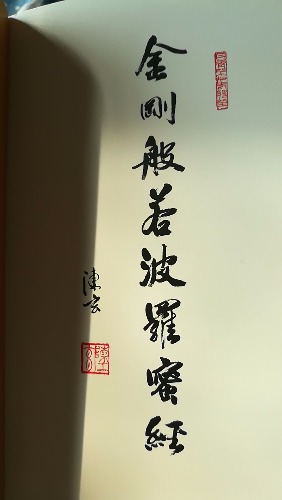 金剛般若波羅蜜經
陳云